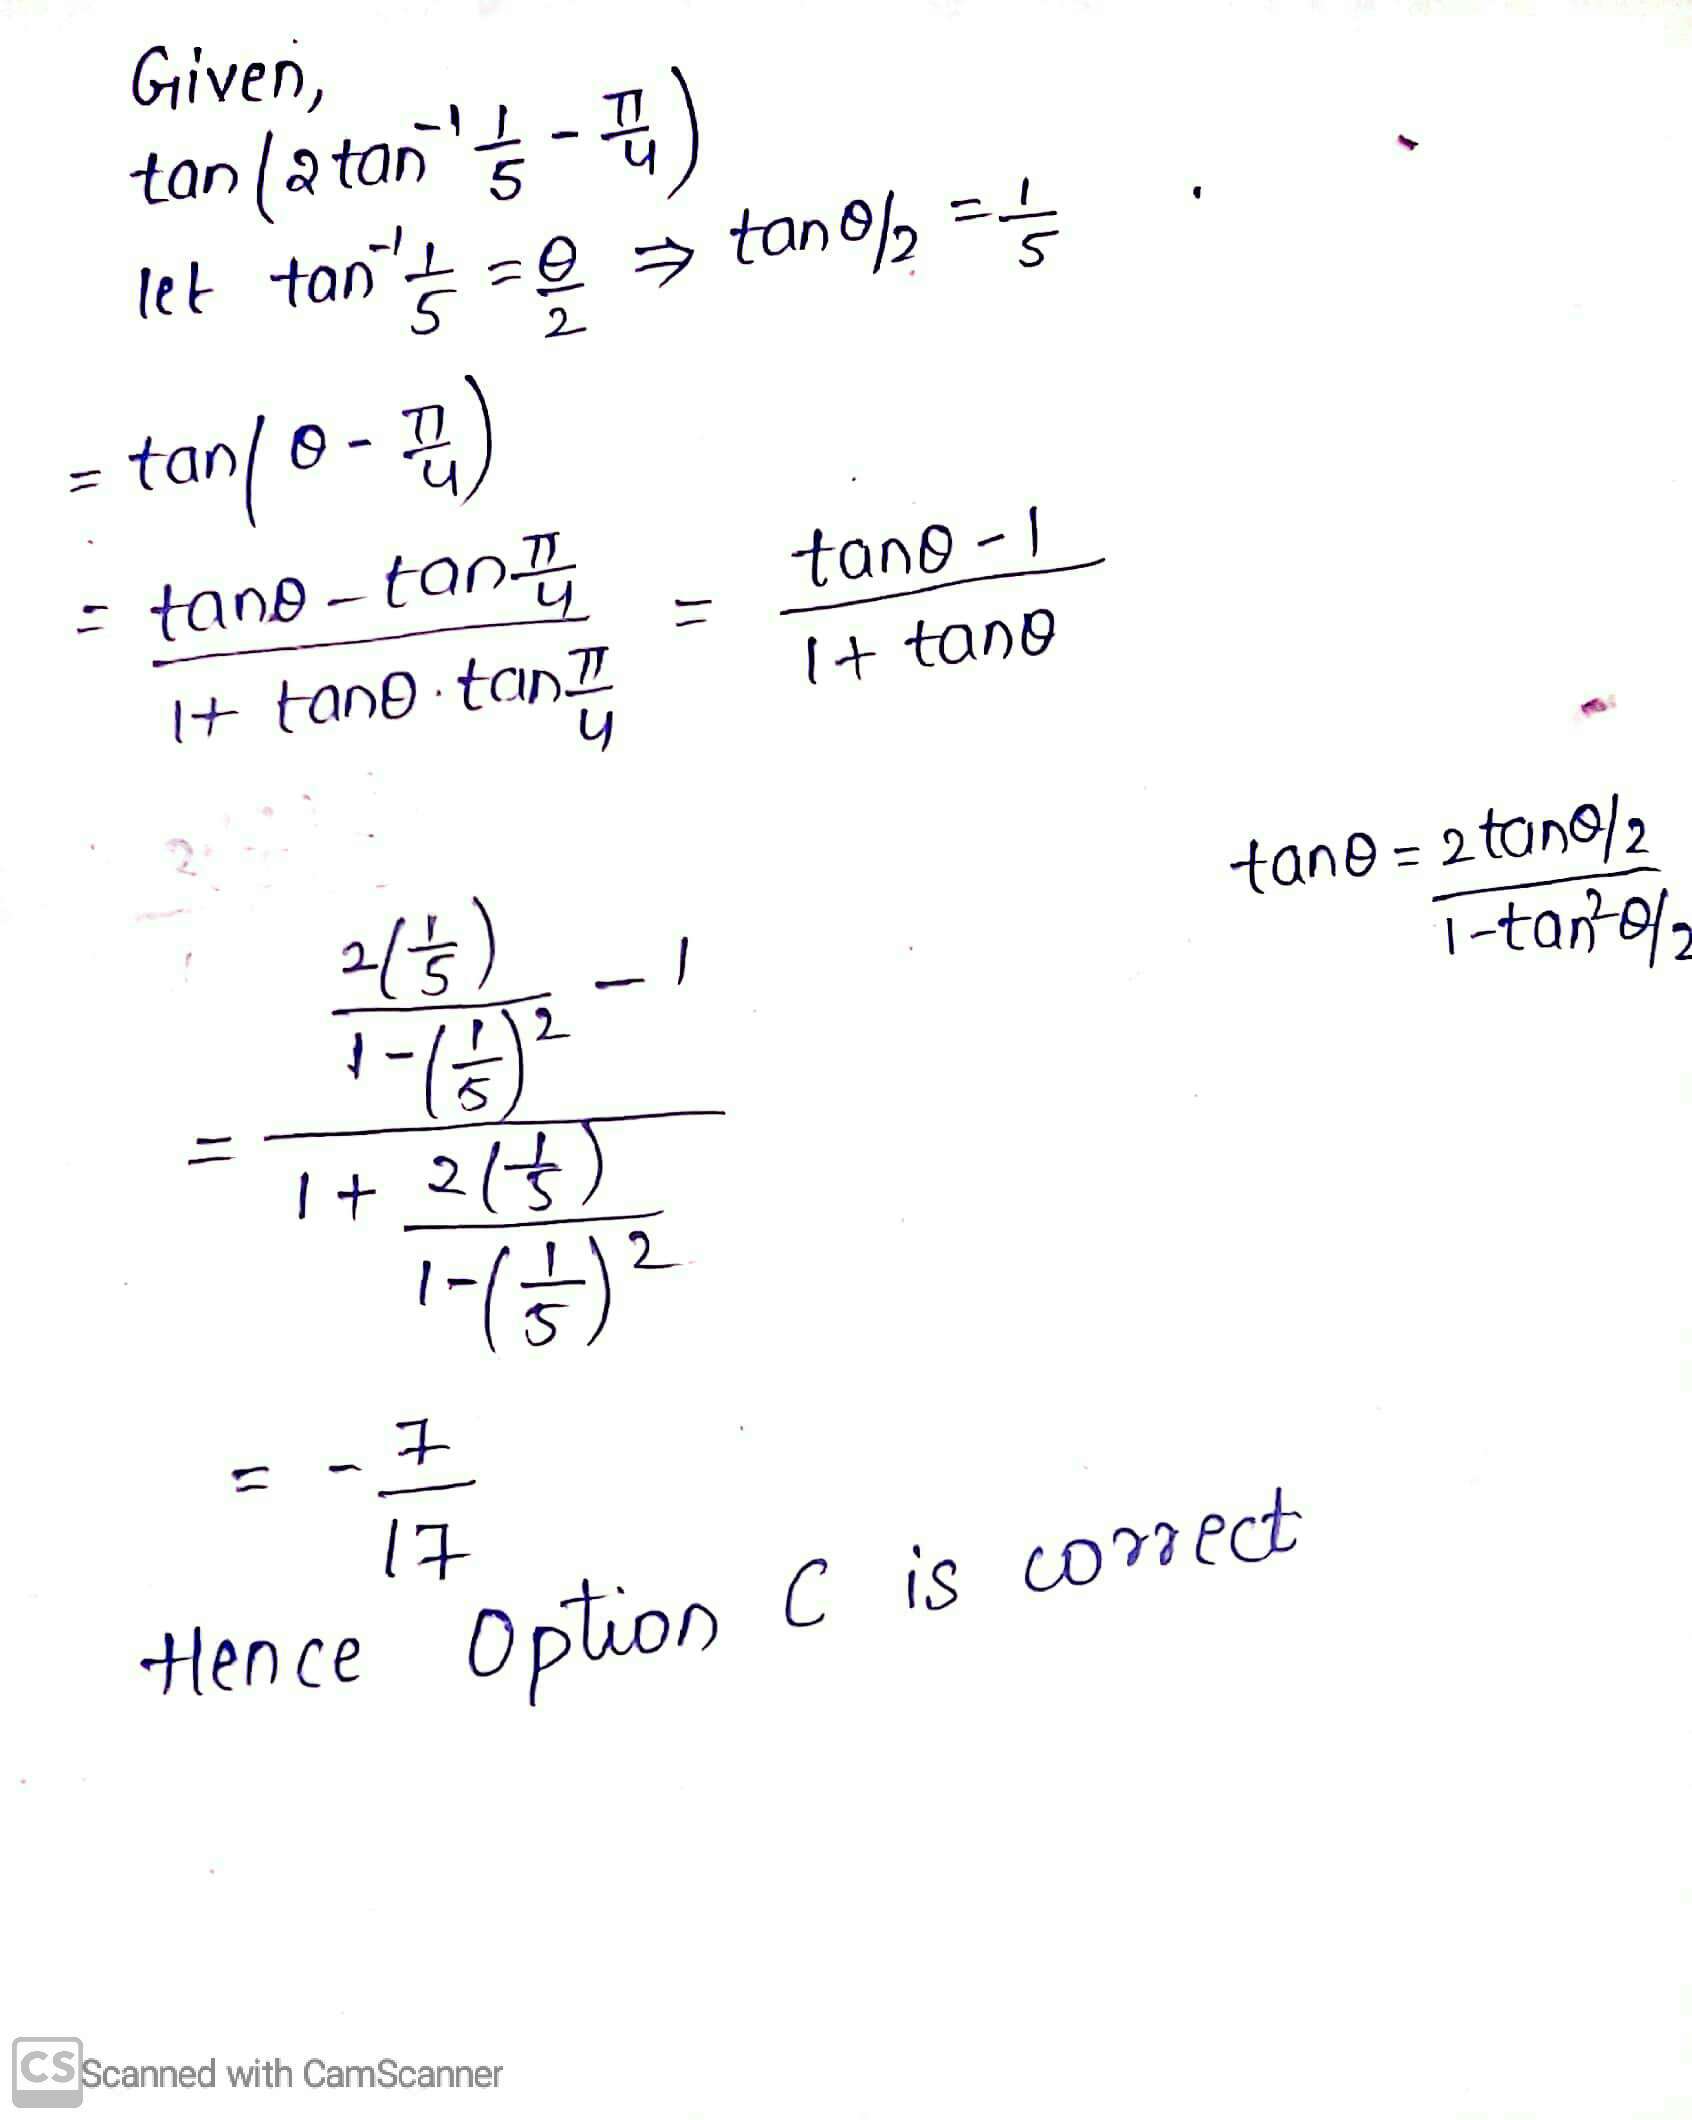 Given,
tan(2tan⁻¹ 1/5 - π/4)
let tan⁻¹ 1/5 = θ/2 ⇒ tanθ/2 = 1/5
= tan(θ - π/4)
= (tanθ - tan π/4)/(1 + tanθ . tan π/4) = (tanθ - 1)/(1 + tanθ)
tanθ = (2tanθ/2)/(1-tan²θ/2)
= ((2(1/5))/(1-(1/5)²) - 1)/(1 + (2(1/5))/(1-(1/5)²))
= - 7/17
Hence Option C is correct
CS Scanned with CamScanner